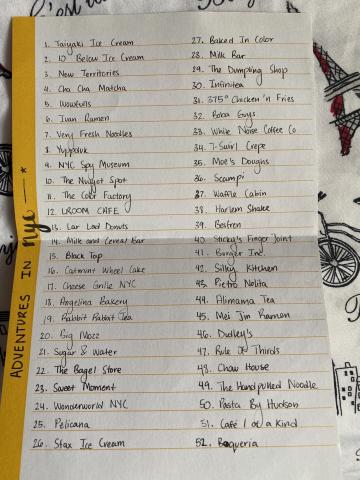 ADVENTURES IN nyc
1. Taiyaki Ice Cream
2. 10 Below Ice Cream
3. New Territories
4. Cha Cha Matcha
5. Wowfulls
6. Ivan Ramen
7. Very Fresh Noodles
8. Yuppaluk
9. NYC Spy Museum
10. The Nugget Spot
11. The Color Factory
12. LROOM CAFE
13. Lar Lad Donuts
14. Milk and Cereal Bar
15. Black Tap
16. Catmint Wheel Cake
17. Cheese Grille NYC
18. Angelina Bakery
19. Rabbit Rabbit Tea
20. Big Mozz
21. Sugar & Water
22. The Bagel Store
23. Sweet Moment
24. Wonderworld NYC
25. Pelicana
26. Stax Ice Cream
27. Baked In Color
28. Milk Bar
29. The Dumpling Shop
30. Infinitea
31. 375° Chicken 'n Fries
32. Boba Guys
33. White Noise Coffee Co
34. T-Swirl Crepe
35. Moe's Doughs
36. Scampi
37. Waffle Cabin
38. Harlem Shake
39. Besfren
40. Sticky's Finger Joint
41. Burger Inc.
42. Silky Kitchen
43. Pietro Nolita
44. Alimama Tea
45. Mei Jin Ramen
46. Dudley's
47. Rule Of Thirds
48. Chow House
49. The Handpulled Noodle
50. Pasta By Hudson
51. Cafe 1 of a Kind
52. Boqueria